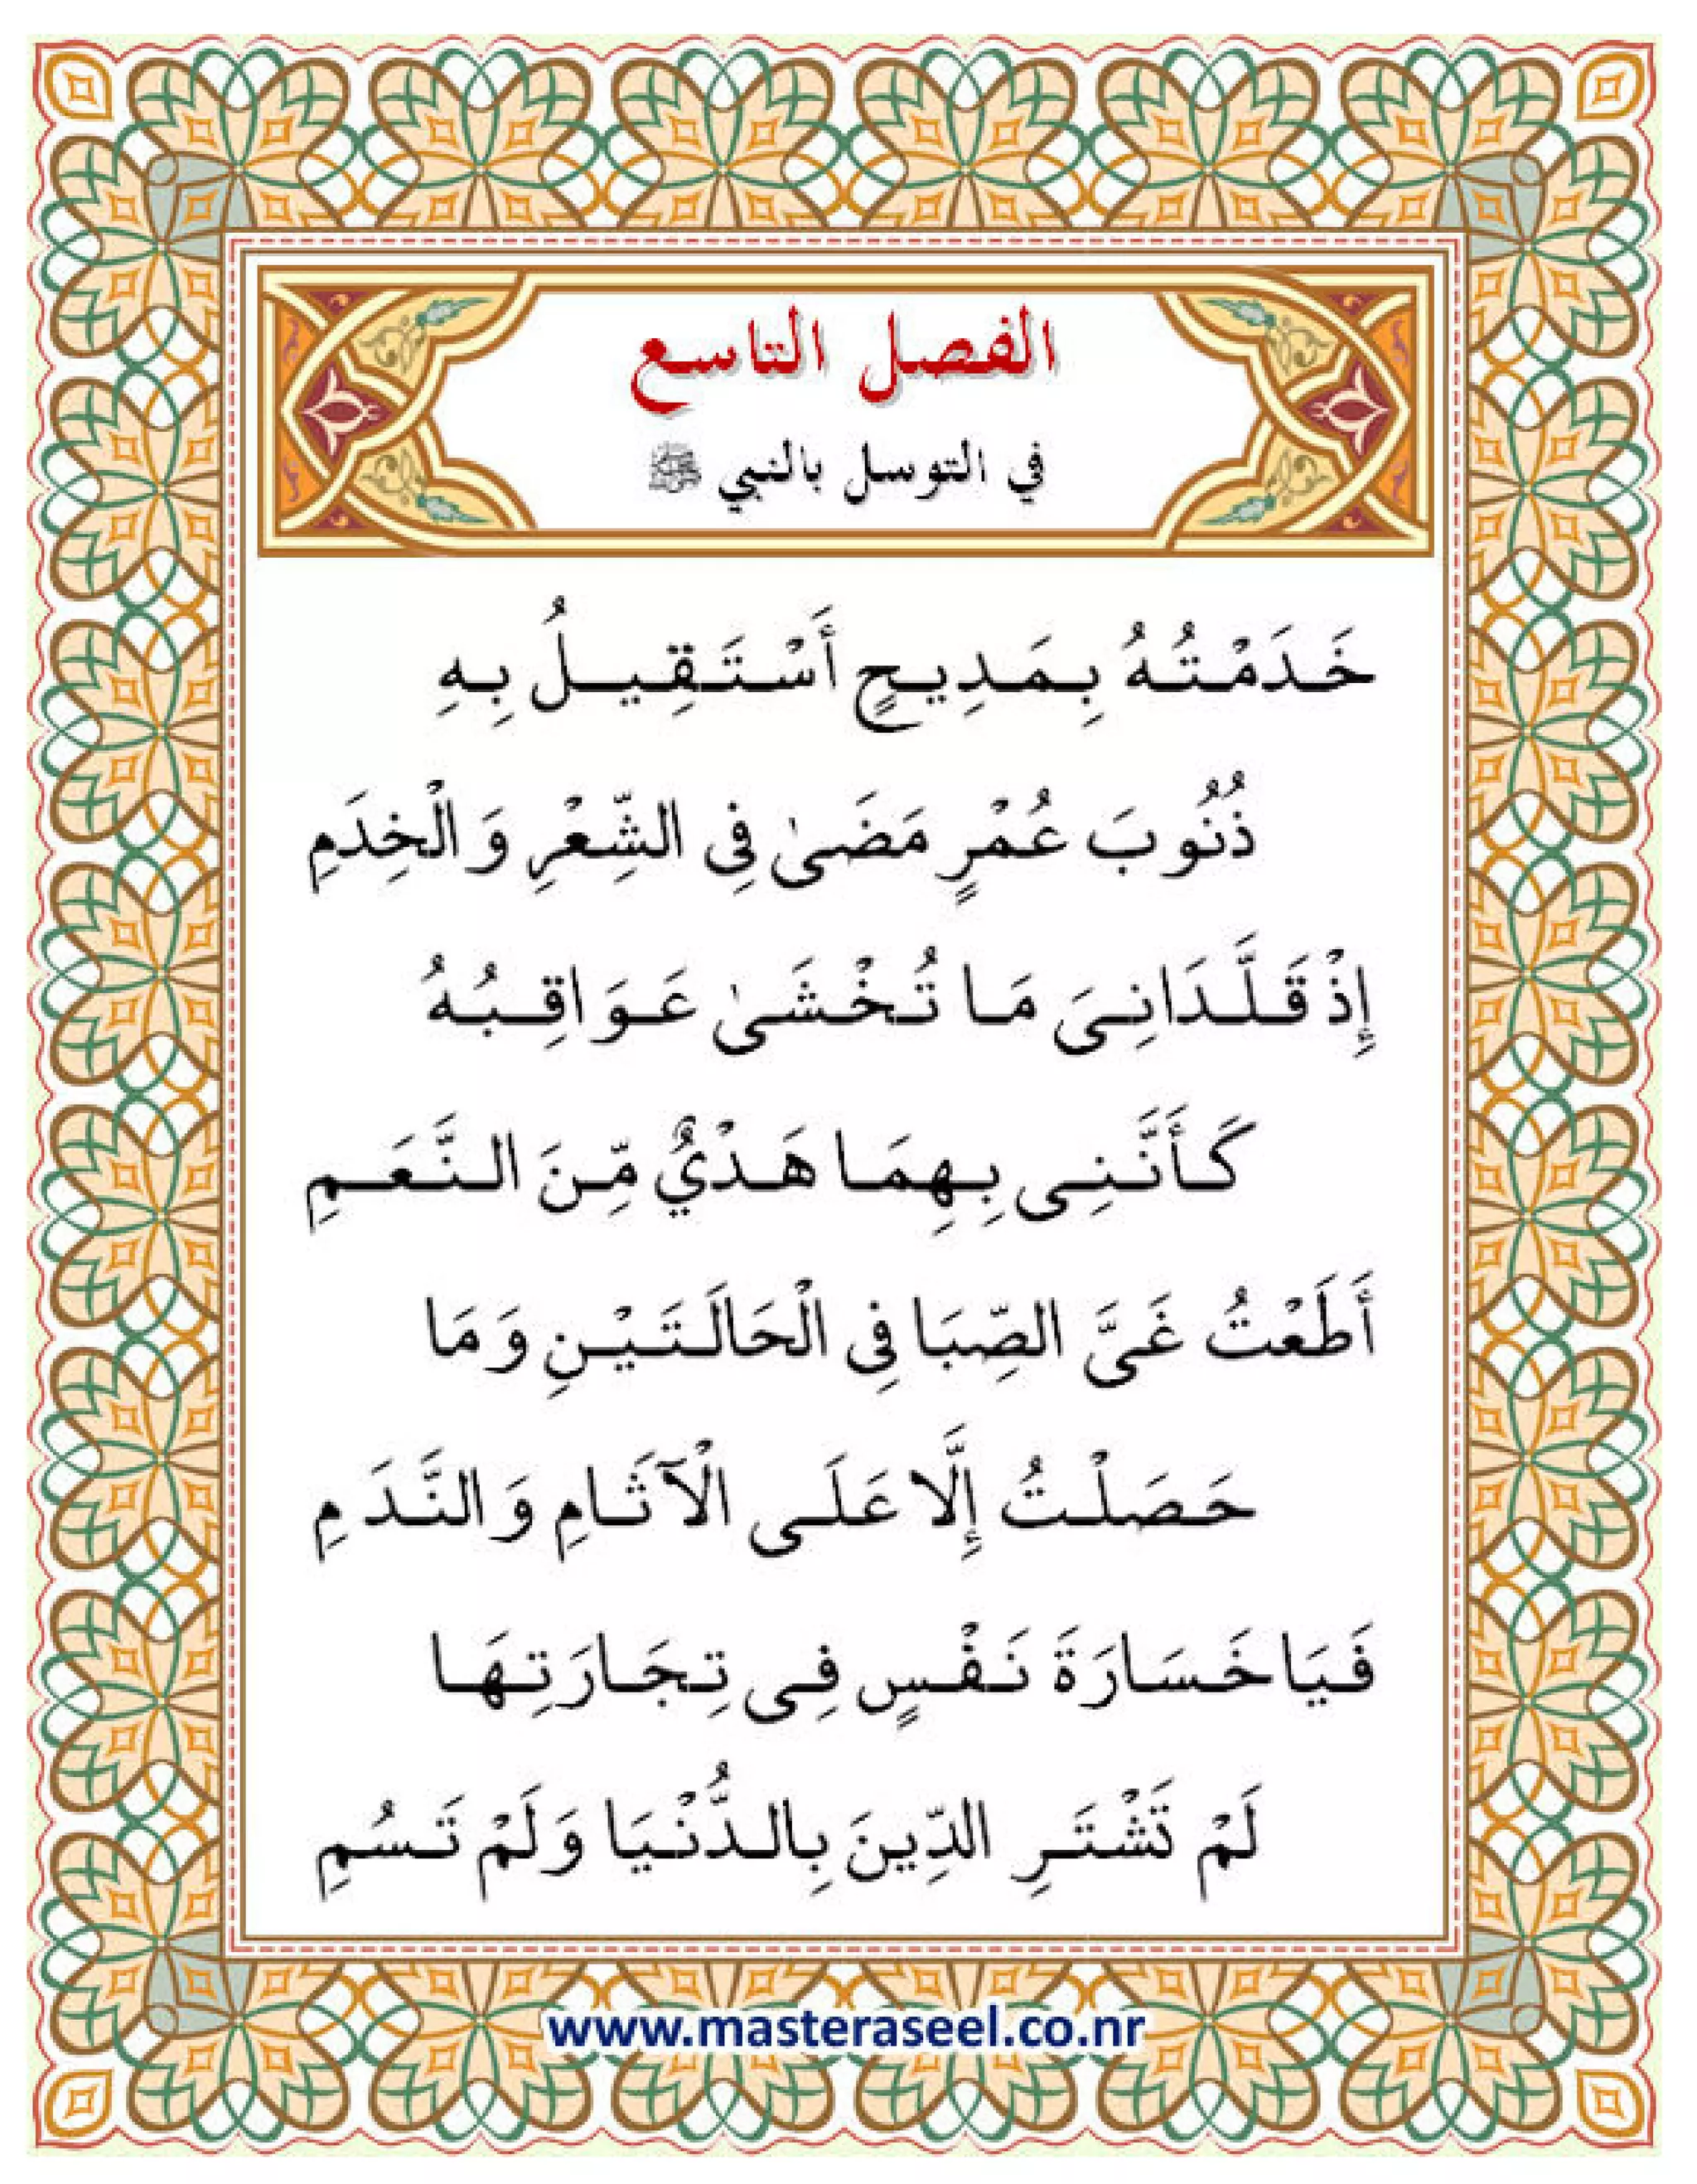 الفصل التاسع
في التوسل بالنبي ﷺ
خَدَمْتُهُ بِمَدِيحٍ أَسْتَقِيلُ بِهِ
ذُنُوبَ عُمْرٍ مَضَىٰ فِي الشِّعْرِ وَالْخِدَمِ
إِذْ قَلَّدَانِيَ مَا تُخْشَىٰ عَوَاقِبُهُ
كَأَنَّنِي بِهِمَا هَدْيٌ مِّنَ النَّعَمِ
أَطَعْتُ غَيَّ الصِّبَا فِي الْحَالَتَيْنِ وَمَا
حَصَلْتُ إِلَّا عَلَى الْآثَامِ وَالنَّدَمِ
فَيَا خَسَارَةَ نَفْسٍ فِي تِجَارَتِهَا
لَمْ تَشْتَرِ الدِّينَ بِالدُّنْيَا وَلَمْ تَسُمِ
www.masteraseel.co.nr